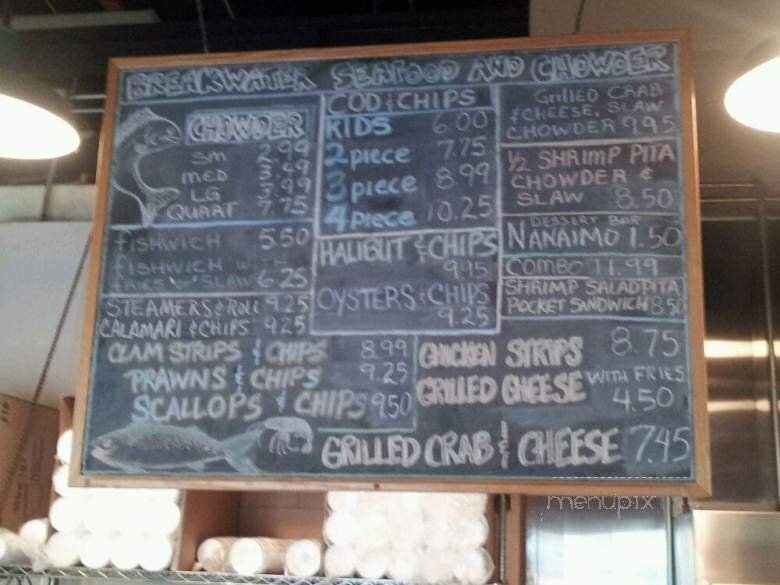 BREAKWATER SEAFOOD AND CHOWDER
CHOWDER
SM 2.99
MED 3.49
LG 3.99
QUART 7.75
FISHWICH 5.50
FISHWICH WITH
FRIES & SLAW 6.25
STEAMERS & ROLL 9.25
CALAMARI & CHIPS 9.25
COD & CHIPS
KIDS 6.00
2 PIECE 7.75
3 PIECE 8.99
4 PIECE 10.25
HALIBUT & CHIPS
9.95
OYSTERS & CHIPS
9.25
GRILLED CRAB
& CHEESE, SLAW
CHOWDER 9.95
1/2 SHRIMP PITA
CHOWDER &
SLAW 8.50
DESSERT BAR
NANAIMO 1.50
COMBO 11.99
SHRIMP SALAD PITA
POCKET SANDWICH 8.50
CLAM STRIPS & CHIPS 8.99
PRAWNS & CHIPS 9.25
SCALLOPS & CHIPS 9.50
CHICKEN STRIPS 8.75
GRILLED CHEESE WITH FRIES
4.50
GRILLED CRAB & CHEESE 7.45
menupix